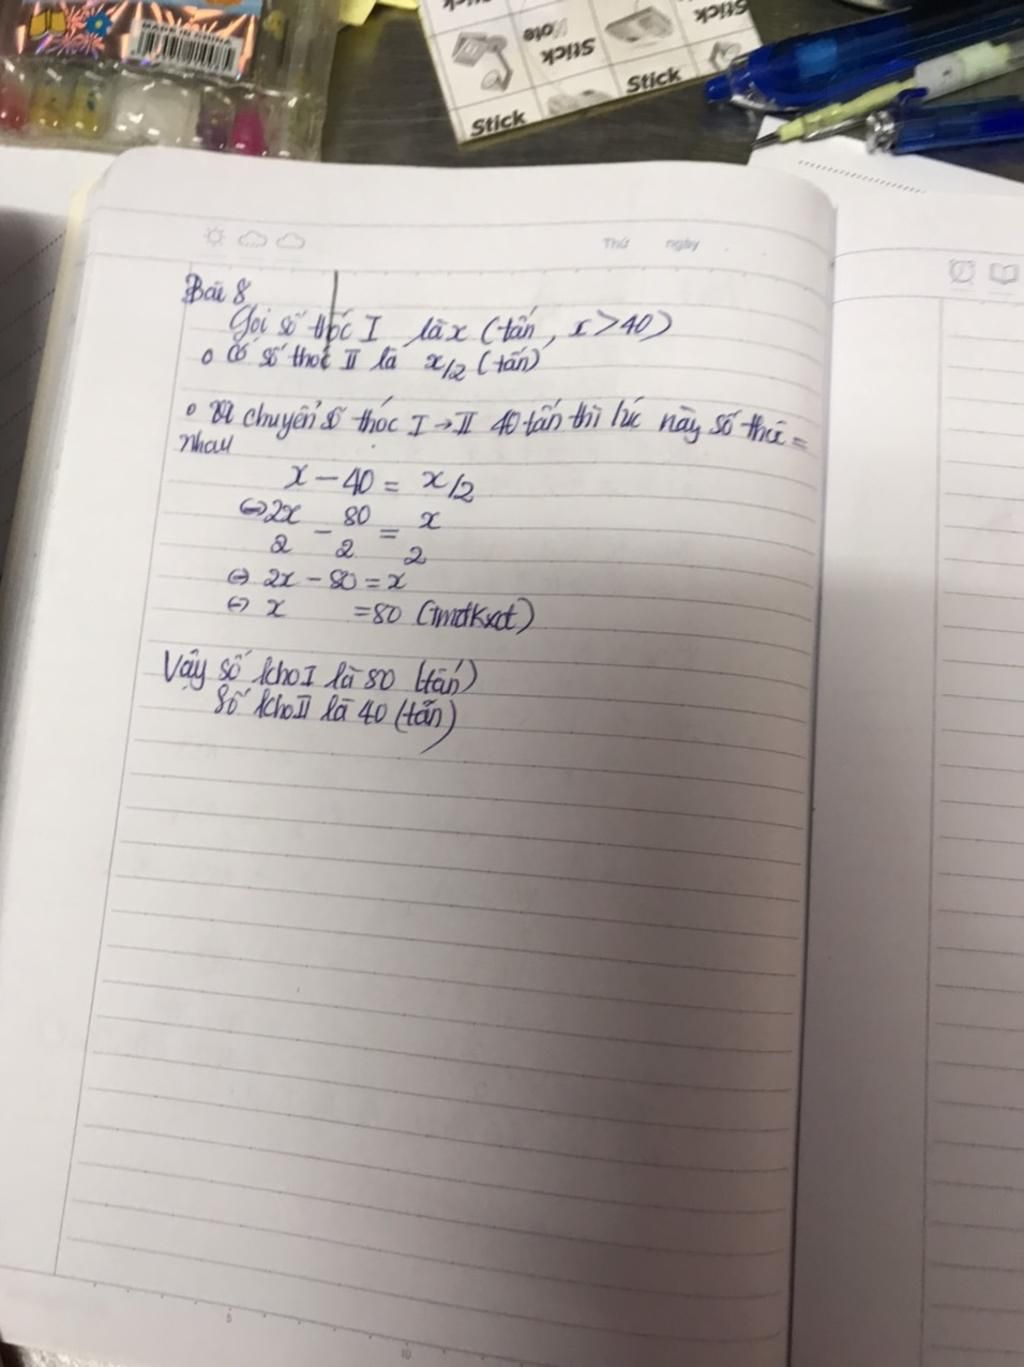 MADE IN CHINA
Stick
Note
Stick
Stick
Stick
Stick
Thứ ngày
Bài 8
Gọi số thóc I là x (tấn, x > 40)
Có số thóc II là x/2 (tấn)
chuyển số thóc I → II 40 tấn thì lúc này số thứ =
nhau
x - 40 = x/2
⇔ 2x/2 - 80/2 = x/2
⇔ 2x - 80 = x
⇔ x = 80 (tmđkxđ)
Vậy số kho I là 80 (tấn)
Số kho II là 40 (tấn)
5
10